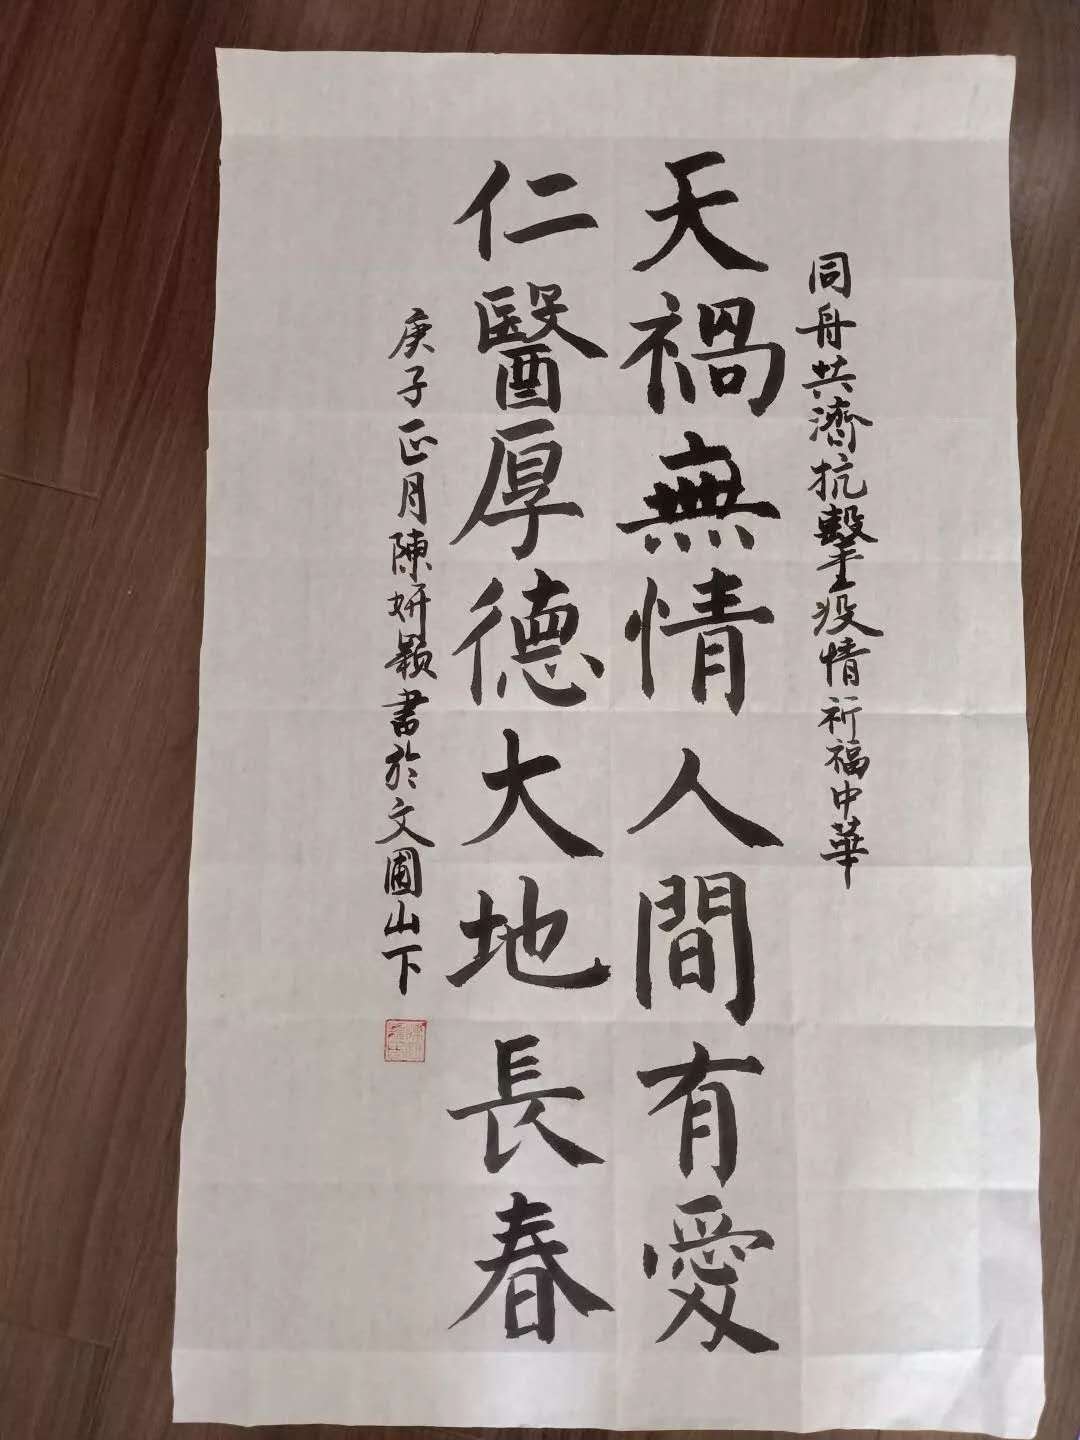 同舟共濟抗擊疫情祈福中華
天禍無情人間有愛
仁醫厚德大地長春
庚子正月陳妍穎書於文圃山下